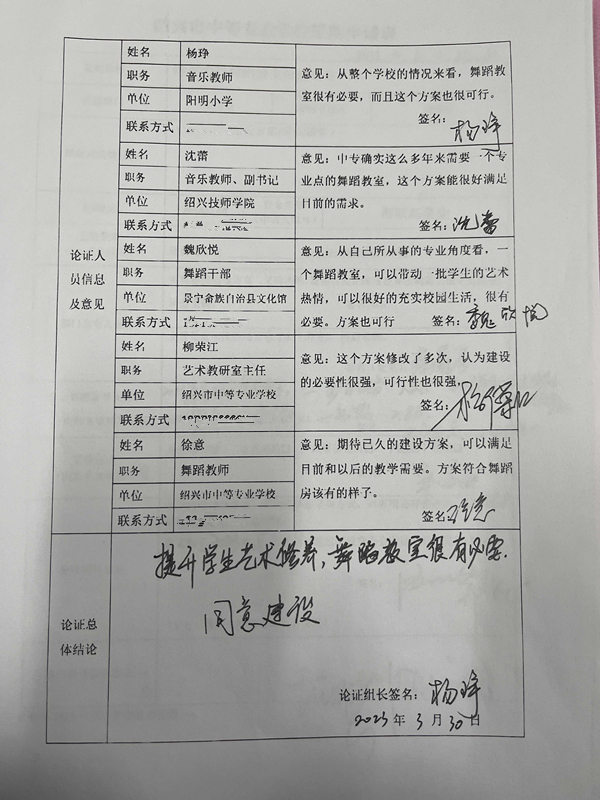 姓名 杨琤
职务 音乐教师
单位 阳明小学
联系方式
意见：从整个学校的情况来看，舞蹈教
室很有必要，而且这个方案也很可行。
签名：杨琤
姓名 沈蕾
职务 音乐教师、副书记
单位 绍兴技师学院
联系方式
意见：中专确实这么多年来需要一个专
业点的舞蹈教室，这个方案能很好满足
目前的需求。
签名：沈蕾
论证人
员信息
及意见
姓名 魏欣悦
职务 舞蹈干部
单位 景宁畲族自治县文化馆
联系方式
意见：从自己所从事的专业角度看，一
个舞蹈教室，可以带动一批学生的艺术
热情，可以很好的充实校园生活，很有
必要。方案也可行 签名：魏欣悦
姓名 柳荣江
职务 艺术教研室主任
单位 绍兴市中等专业学校
联系方式
意见：这个方案修改了多次，认为建设
的必要性很强，可行性也很强，
签名：柳荣江
姓名 徐意
职务 舞蹈教师
单位 绍兴市中等专业学校
联系方式
意见：期待已久的建设方案，可以满足
目前和以后的教学需要。方案符合舞蹈
房该有的样了。
签名：徐意
论证总
体结论
提升学生艺术修养，舞蹈教室很有必要.
同意建设
论证组长签名：杨琤
2023年3月30日